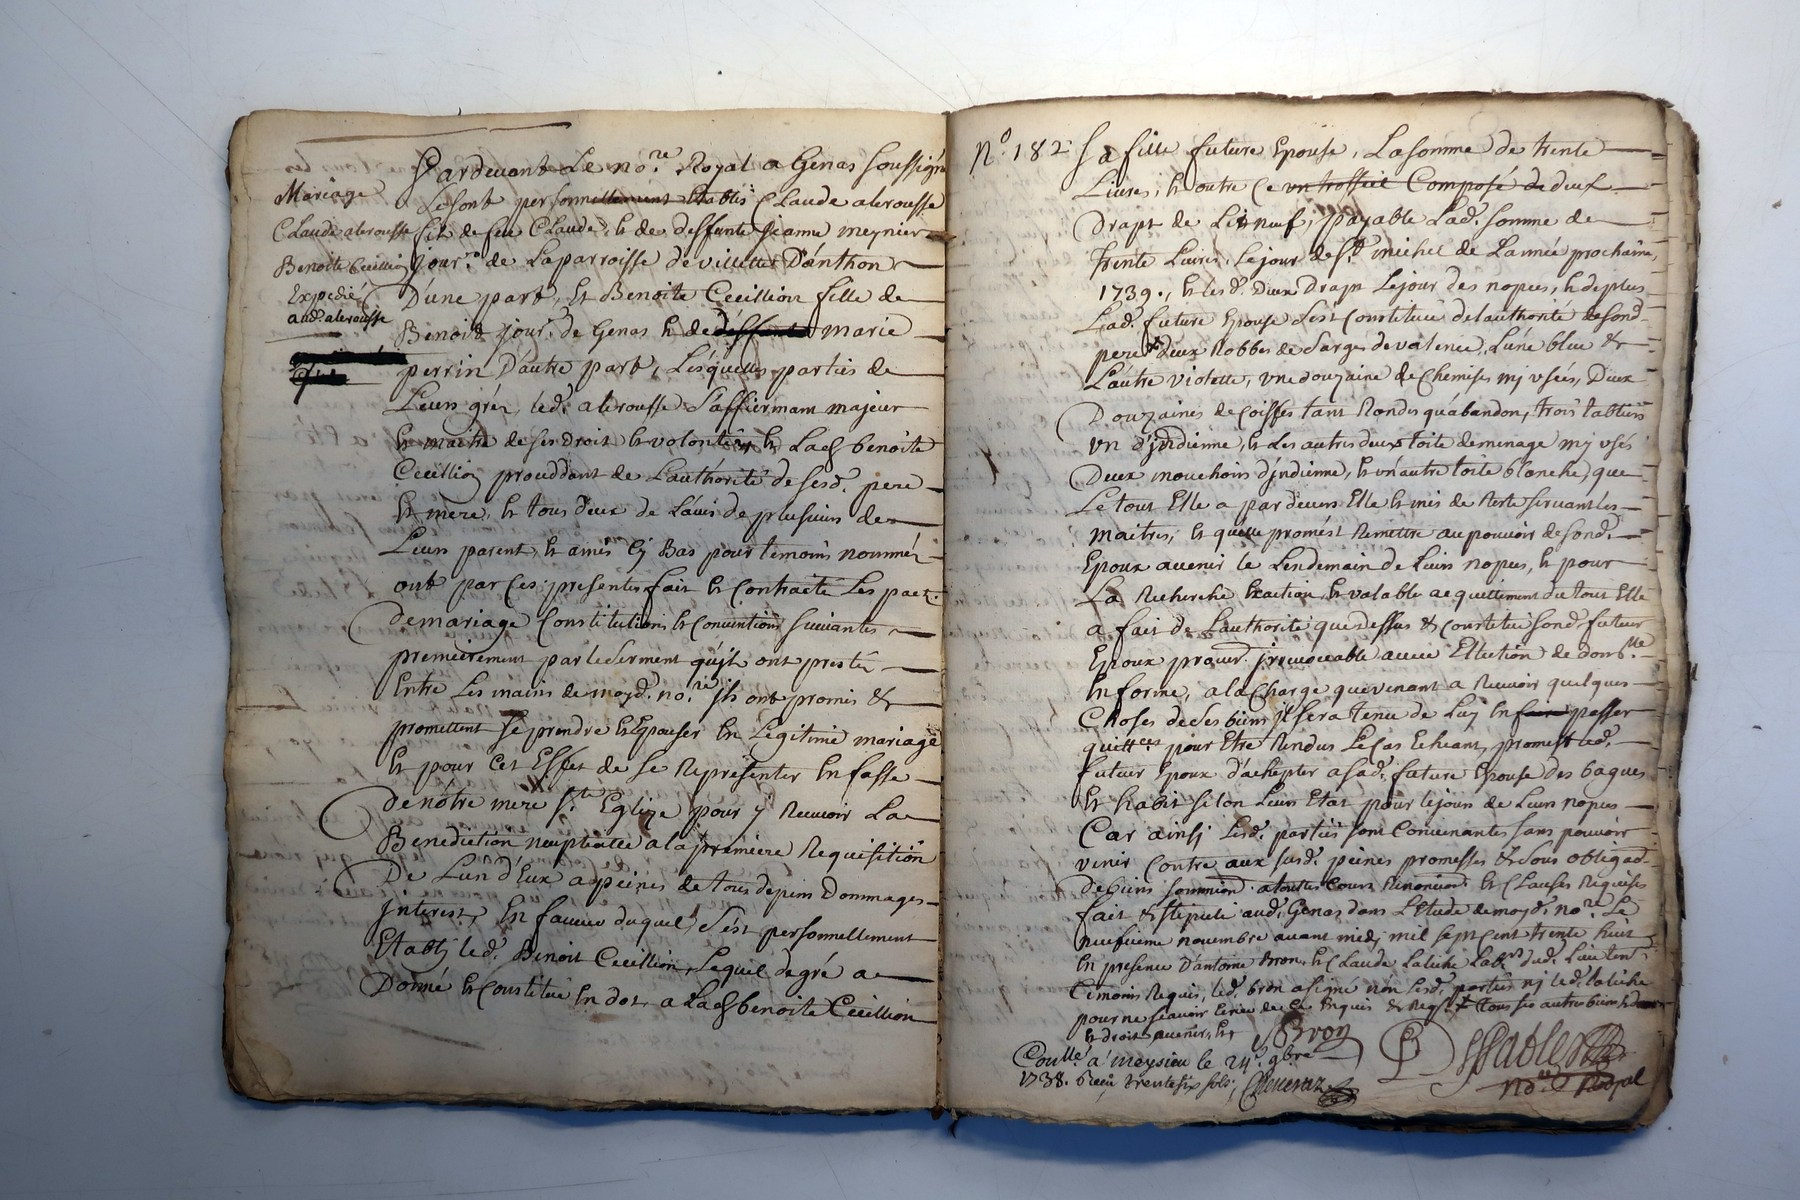 Mariage
Claude alerousse
Benoite Cecillion
Expedié
aud. alerousse
Pardevant Le no.re Royal a Genas soussigné
Se sont personnellement établis Claude alerousse
fils de feu Claude, et de deffunte Jeanne meynier
jour.r de La parroisse de villette D'anthon
D'une part, et Benoite Cecillion fille de
Benoit jour.r de Genas et de deffunte marie
perrin D'autre part, Lesquelles parties de
Leurs gréz, led. alerousse s'affiermant majeur
et maitre de ses Droit et volontés, et Lad. benoite
Cecillion proceddant de L'authorité de sesd. pere
et mere, et tous deux de L'avis de plusieurs de
Leurs parents et amis Cy Bas pour temoins nomméz
ont par Ces presentes fait et Contracté Les pact.
de mariage Constitutions et Conventions suivantes
premierement par le serment qu'ils ont presté
Entre Les mains de moyd. no.re ils ont promis et
promettent se prendre et Epouser En Legitime mariage
Et pour Cet Effet de se Représenter En fasse
de nôtre mere s.te Eglize pour y Recevoir La
Benediction neuptialle a la premiere Requisition
De L'un d'Eux a peines de tous depens Dommages
interest, En faveur duquel s'est personnellement
Etably led. Benoit Cecillion, Lequel de gré a
Donné et Constitué En dot, a Lad. benoite Cecillion
N.o 182
sa fille future Epouse, La somme de trente
Livres, et outre Ce un trosseil Composé de deux
Drapt de Lit neuf, payable Lad. somme de
trente Livres, Le jour de s.t michel de L'année prochaine
1739., et lesd. Deux Drapt Le jour des nopces, et de plus
Lad. future Epouse s'est Constituée de l'authorité de sond.
pere deux Robbes de sarge de valence, L'une blue &
L'autre violette, une douzaine de Chemises my usées, Deux
Douzaines de Coiffes tant Rondes qu'abandon, trois tabliers
un d'jndienne, et Les autres deux toile de menage my usés
Deux mouchoirs d'jndienne, et un autre toile blanche, que
Le tout Elle a par devers Elle et mis de Reste servant Les
maitres, et quelle promést Remettre au pouvoir de sond.
Epoux avenir le Lendemain de Leurs nopces, et pour
La Recherche Exaction et valable acquittement du tout Elle
a fait de L'authorité que dessus & Constitué sond. futeur
Epoux procur. jrrevocable avec Ellection de dom.lle
En forme, a la Charge que venant a Recevoir quelques
Choses de ses biens jl sera tenu de Luy En passer
quitt.ces pour Etre Rendus Le Cas Echeant, promest led.
futeur Epoux d'achepter a sad. future Epouse des bagues
Et habit selon Leurs Etat pour le jour de Leurs nopces
Car ainsy Lesd. parties sont Convenantes sans pouvoir
venir Contre aux susd. peines promesses & sous obligaö.
de biens soumiond. a toutes Cours Renonciöd. et Clauses Requises
fait & stipulé aud. Genas dans L'Etude de moyd. no.re Le
neufvieme novembre avant midy mil sept Cent trente huit
En presence D'antoine bron, et Claude Laliche Lab.rs dud. Lieu tem.
temoins Requis, led. bron a signé non Lesd. parties ny led. laliche
pour ne sçavoir de Ce Enquis & Req.s tous ses autres biens
et droit avenir, et
ABron
Coulle. a meysieu le 24.e 9bre
1738. Reçu trente six sols,
no.re Royal